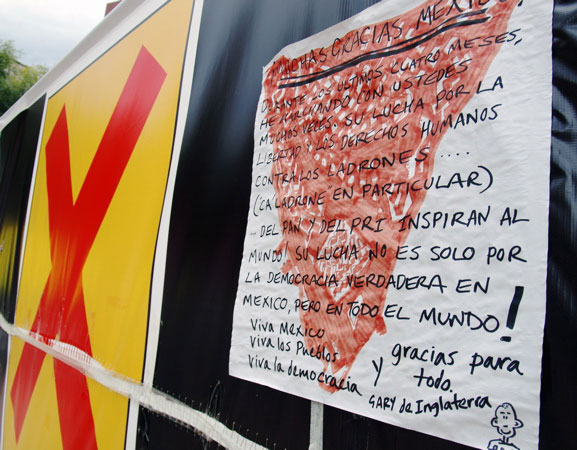 ¡MUCHAS GRACIAS, MEXICO!
DURANTE LOS ULTIMOS CUATRO MESES,
HE MARCHANDO CON USTEDES
MUCHOS VECES. SU LUCHA POR LA
LIBERTAD Y LOS DERECHOS HUMANOS
CONTRA LOS LADRONES ....
(CA"LADRONE" EN PARTICULAR)
... DEL PAN Y DEL PRI INSPIRAN AL
MUNDO! SU LUCHA NO ES SOLO POR
LA DEMOCRACIA VERDADERA EN
MEXICO, PERO EN TODO EL MUNDO!
Viva Mexico
Viva los Pueblos
Viva la democracia y gracias para
todo.
GARY de Inglaterra